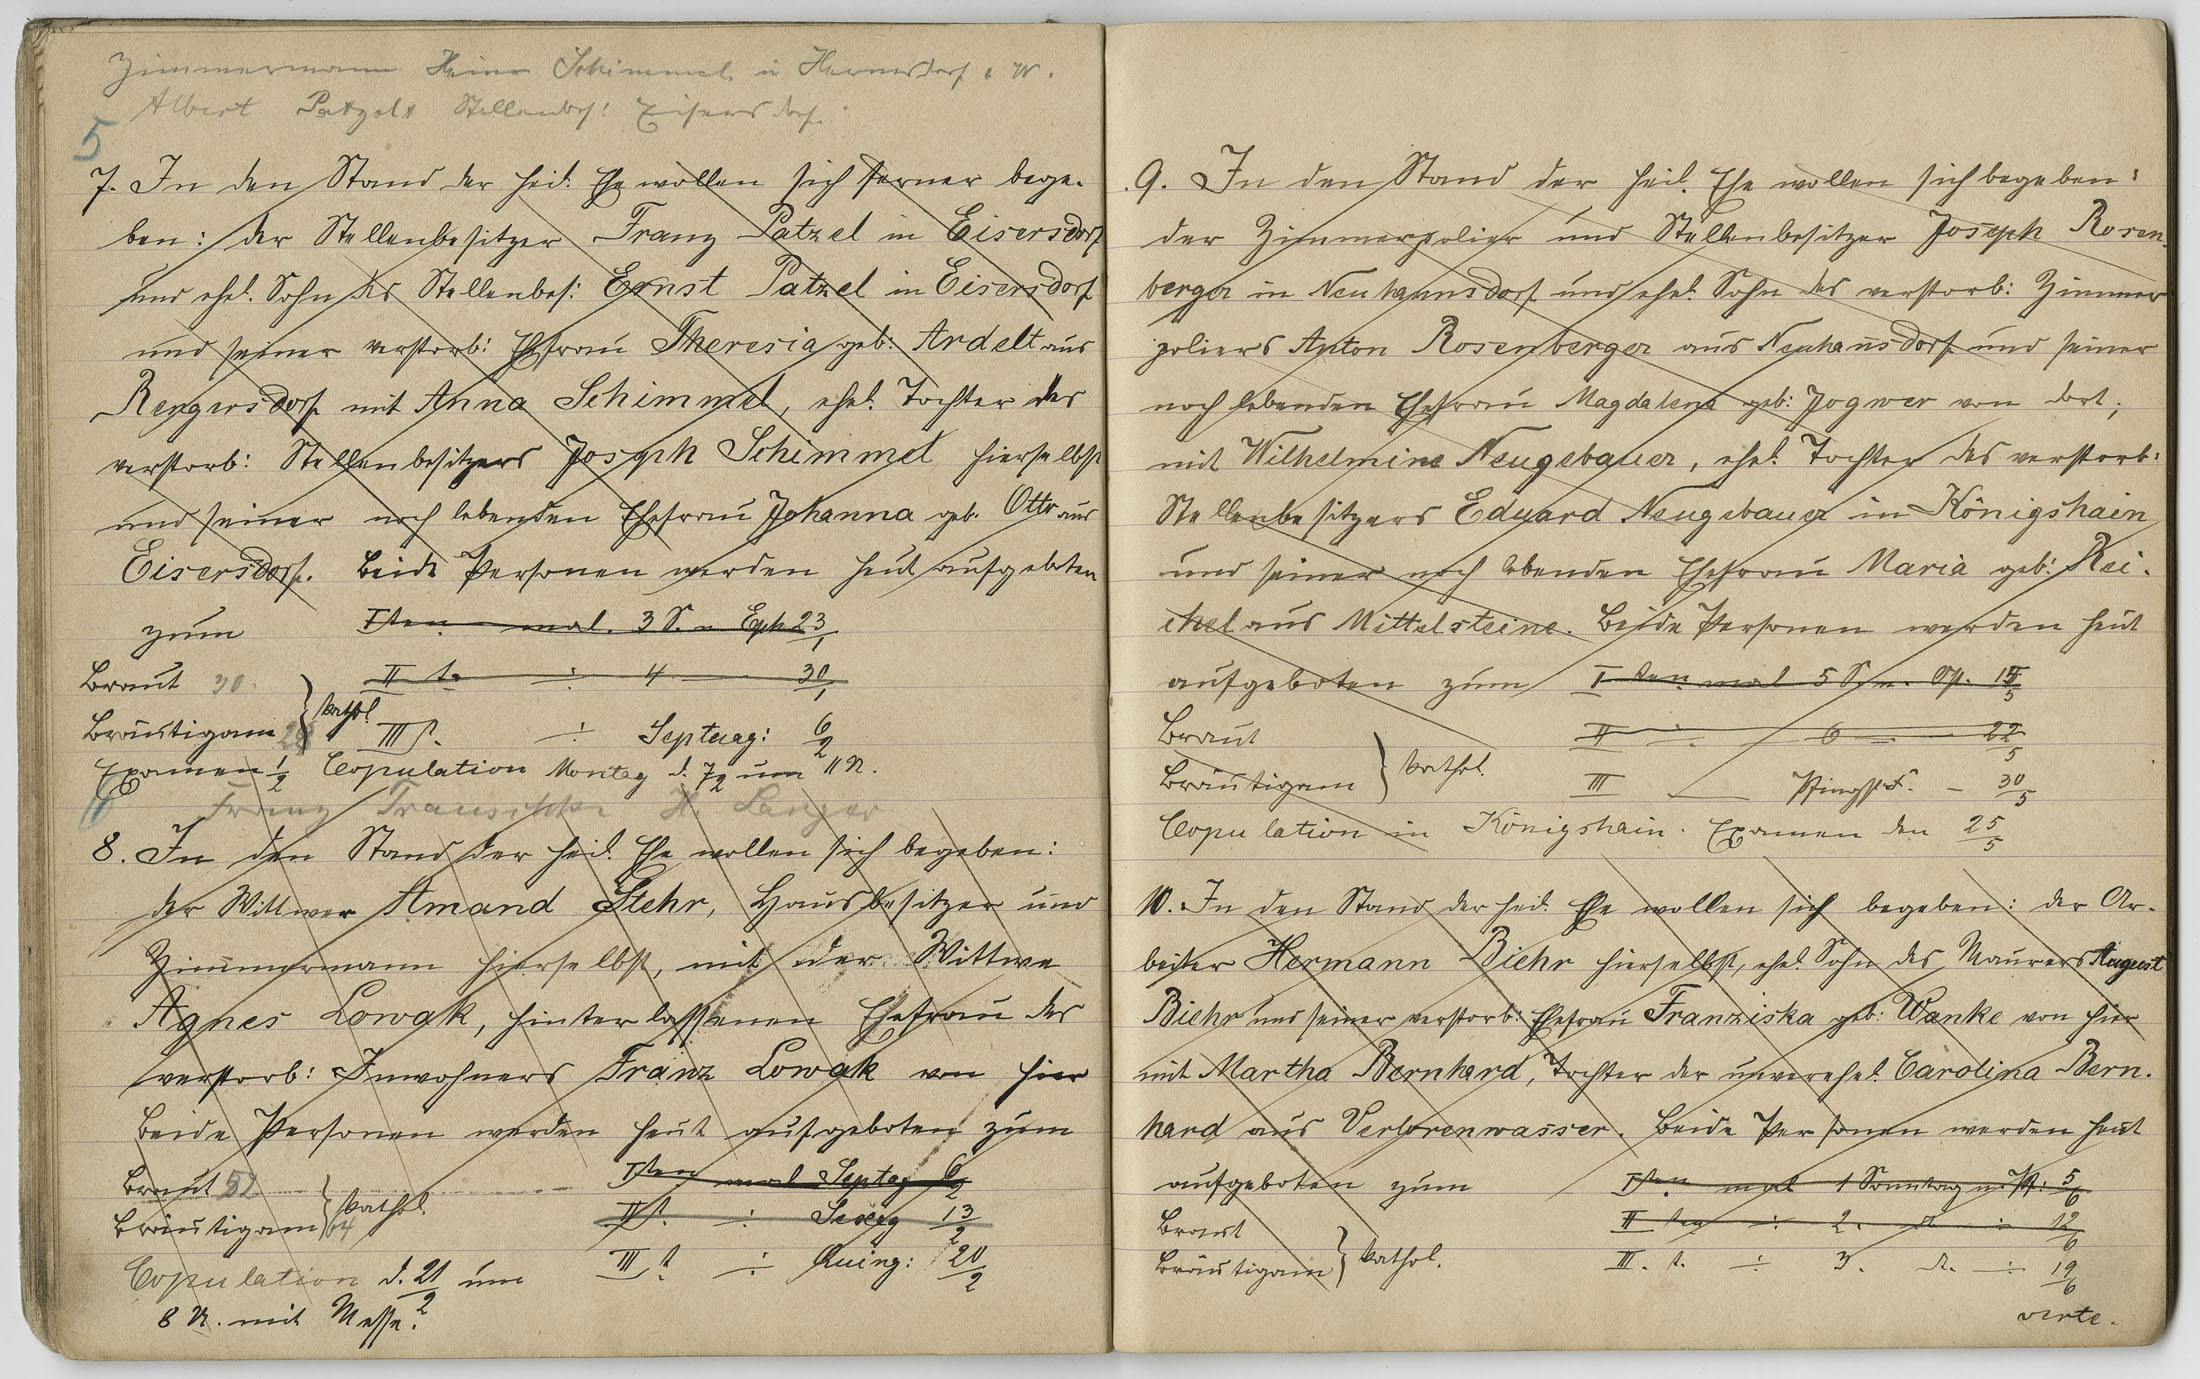 Zimmermann Heinr Schimmel in Hermsdorf a W.
Albert Patzelt Stellenbes: Eisersdorf.
5
7. In den Stand der heil. Ehe wollen sich ferner bege-
ben: der Stellenbesitzer Franz Patzel in Eisersdorf
und ehel. Sohn des Stellenbes: Ernst Patzel in Eisersdorf
und seiner verstorb: Ehefrau Theresia geb: Ardelt aus
Rengersdorf mit Anna Schimmel, ehel. Tochter des
verstorb: Stellenbesitzers Joseph Schimmel hierselbst
und seiner noch lebenden Ehefrau Johanna geb. Otte aus
Eisersdorf. Beide Personen werden heut aufgeboten
zum Iten mal. 3 S. n Eph 23/1
Braut 30. II t. ÷ 4 — 30/1
Bräutigam 28 } kathol. III t. ÷ Septuag: 6/2
Examen 1/2 Copulation Montag d. 7/2 um 11 U.
6 Franz H. Langer
8. In den Stand der heil. Ehe wollen sich begeben:
der Wittwer Amand Stehr, Hausbesitzer und
Zimmermann hierselbst, mit der Wittwe
Agnes Lowak, hinterlassenen Ehefrau des
verstorb: Inwohners Franz Lowak von hier
Beide Personen werden heut aufgeboten zum
Braut 52 Iten mal Septag 6/2
Bräutigam 64 } kathol. II t. ÷ Sexag 13/2
III t ÷ Quing: 20/2
Copulation d. 21/2 um
8 U. mit Messe.
9. In den Stand der heil. Ehe wollen sich begeben:
der Zimmerpolier und Stellenbesitzer Joseph Rosen-
berger in Neuhannsdorf und ehel. Sohn des verstorb: Zimmer
poliers Anton Rosenberger aus Neuhansdorf und seiner
noch lebenden Ehefrau Magdalena geb: Jogwer von dort,
mit Wilhelmine Neugebauer, ehel. Tochter des verstorb:
Stellenbesitzers Eduard Neugebauer in Königshain
und seiner noch lebenden Ehefrau Maria geb: Rei-
chel aus Mittelsteine. Beide Personen werden heut
aufgeboten zum I ten mal 5 S. n. Op. 15/5
Braut II ÷ 6 — 22/5
Bräutigam } kathol. III — Pfingstf. — 30/5
Copulation in Königshain. Examen den 25/5
10. In den Stand der heil. Ehe wollen sich begeben: der Ar-
beiter Hermann Biehr hierselbst, ehel. Sohn des Maurers August
Biehr und seiner verstorb: Ehefrau Franziska geb: Wanke von hier
mit Martha Bernhard, Tochter der unverehel. Carolina Bern-
hard aus Verlorenwasser. Beide Personen werden heut
aufgeboten zum Iten mal 1 Sonntag n. Pf: 5/6
Braut II ten ÷ 2. d. ÷ 12/6
Bräutigam } kathol. III. t. ÷ 3. d. ÷ 19/6
verte.